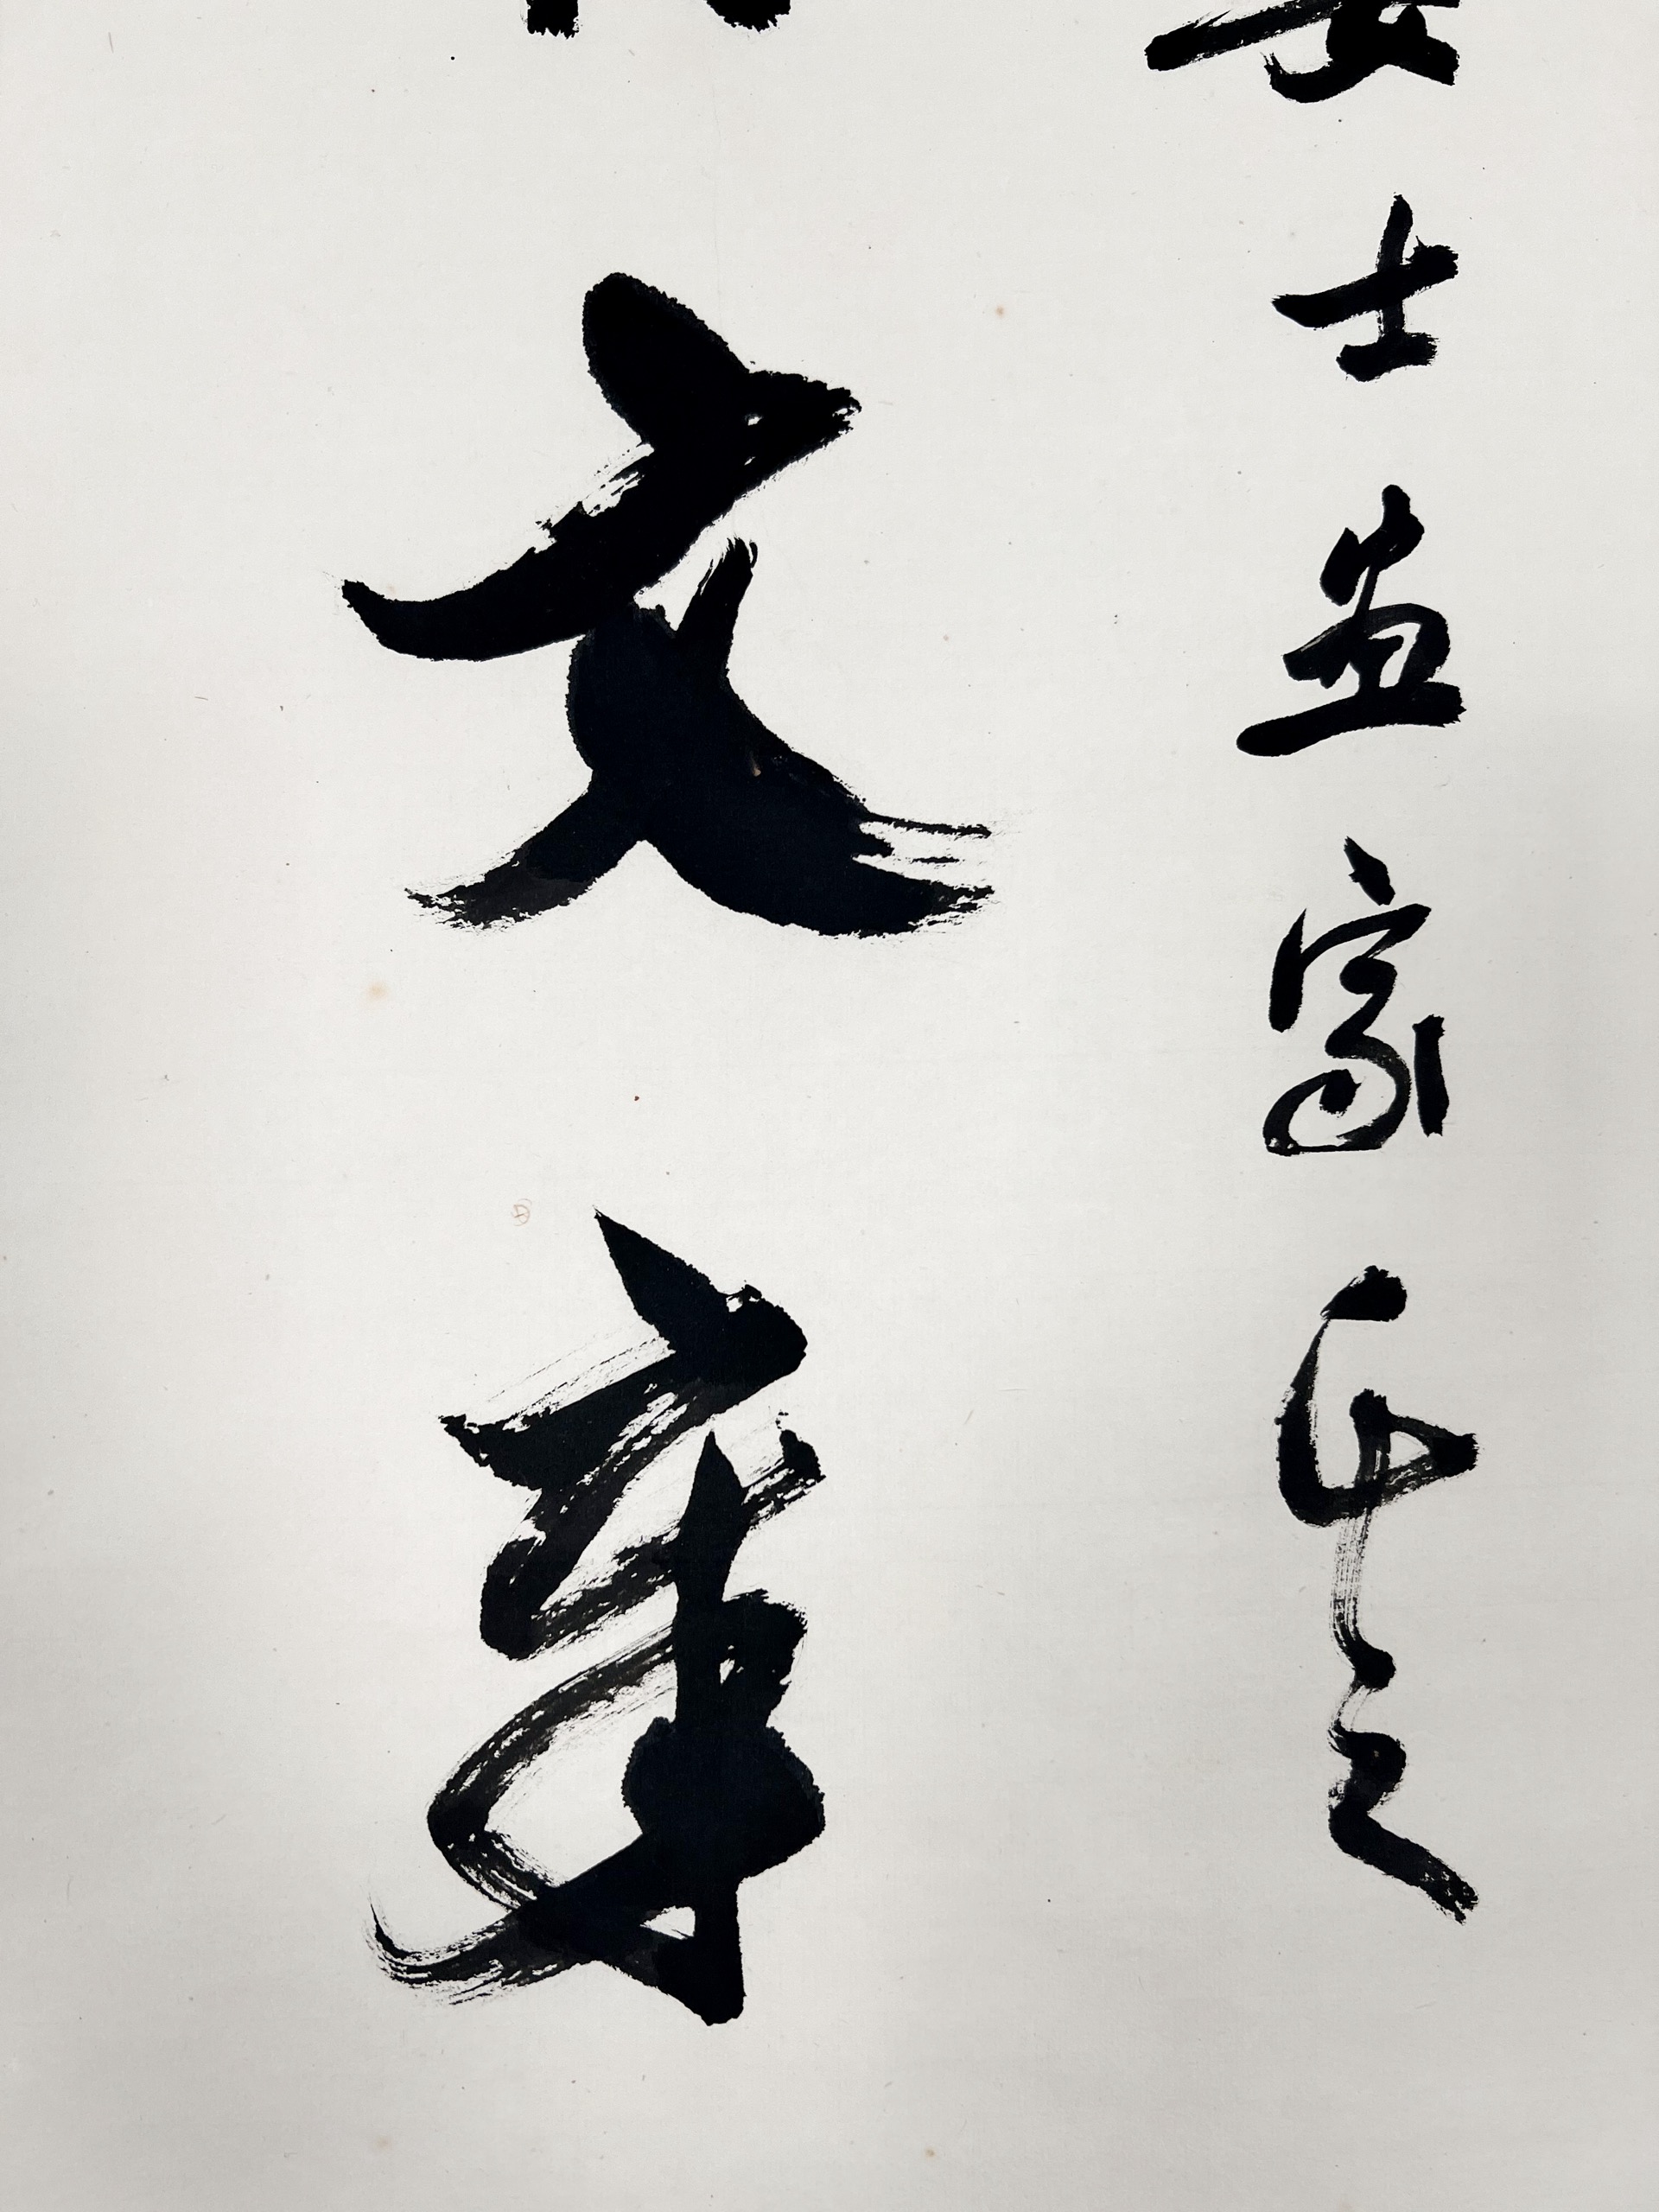 士画家正之
文章